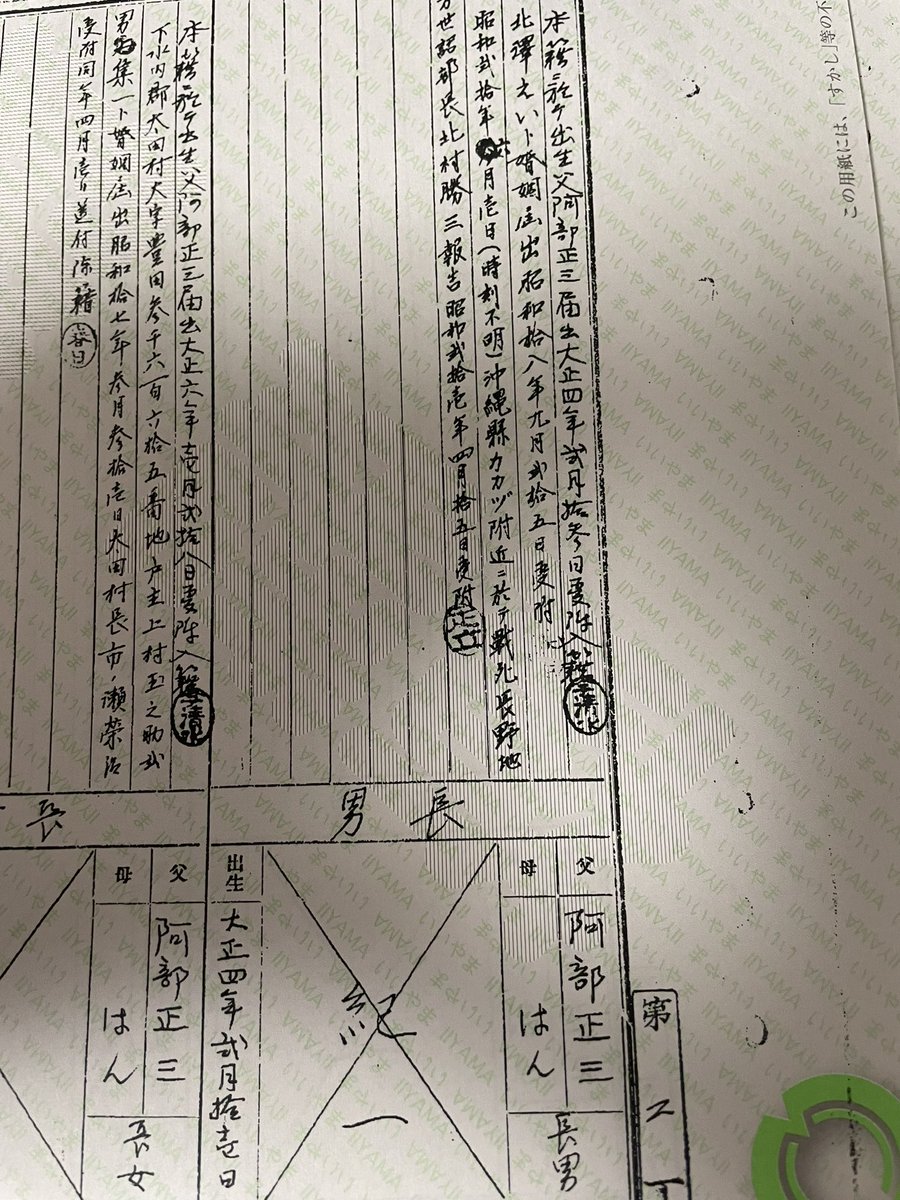 この用紙には、「すかし」等の不
IIYAMA いいやま
第 2 丁
本籍ニ於テ出生父阿部正三届出大正四年弐月拾参日受附入籍
北澤えいト婚姻届出昭和拾八年九月弐拾五日受附
昭和弐拾年六月壱日(時刻不明)沖縄縣カカヅ附近ニ於テ戰死長野地
方世話部長北村勝三報告昭和弐拾壱年四月拾五日受附
長男
父 阿部正三
母 はん
長男
紀一
出生 大正四年弐月拾壱日
本籍ニ於テ出生父阿部正三届出大正六年壱月弐拾八日受附入籍
下水内郡太田村大字豊田参千六百六拾五番地戸主上村玉之助弐
男集一ト婚姻届出昭和拾七年参月参拾壱日太田村長市ノ瀬榮治
受附同年四月壱日送付除籍
長
父 阿部正三
母 はん
長女